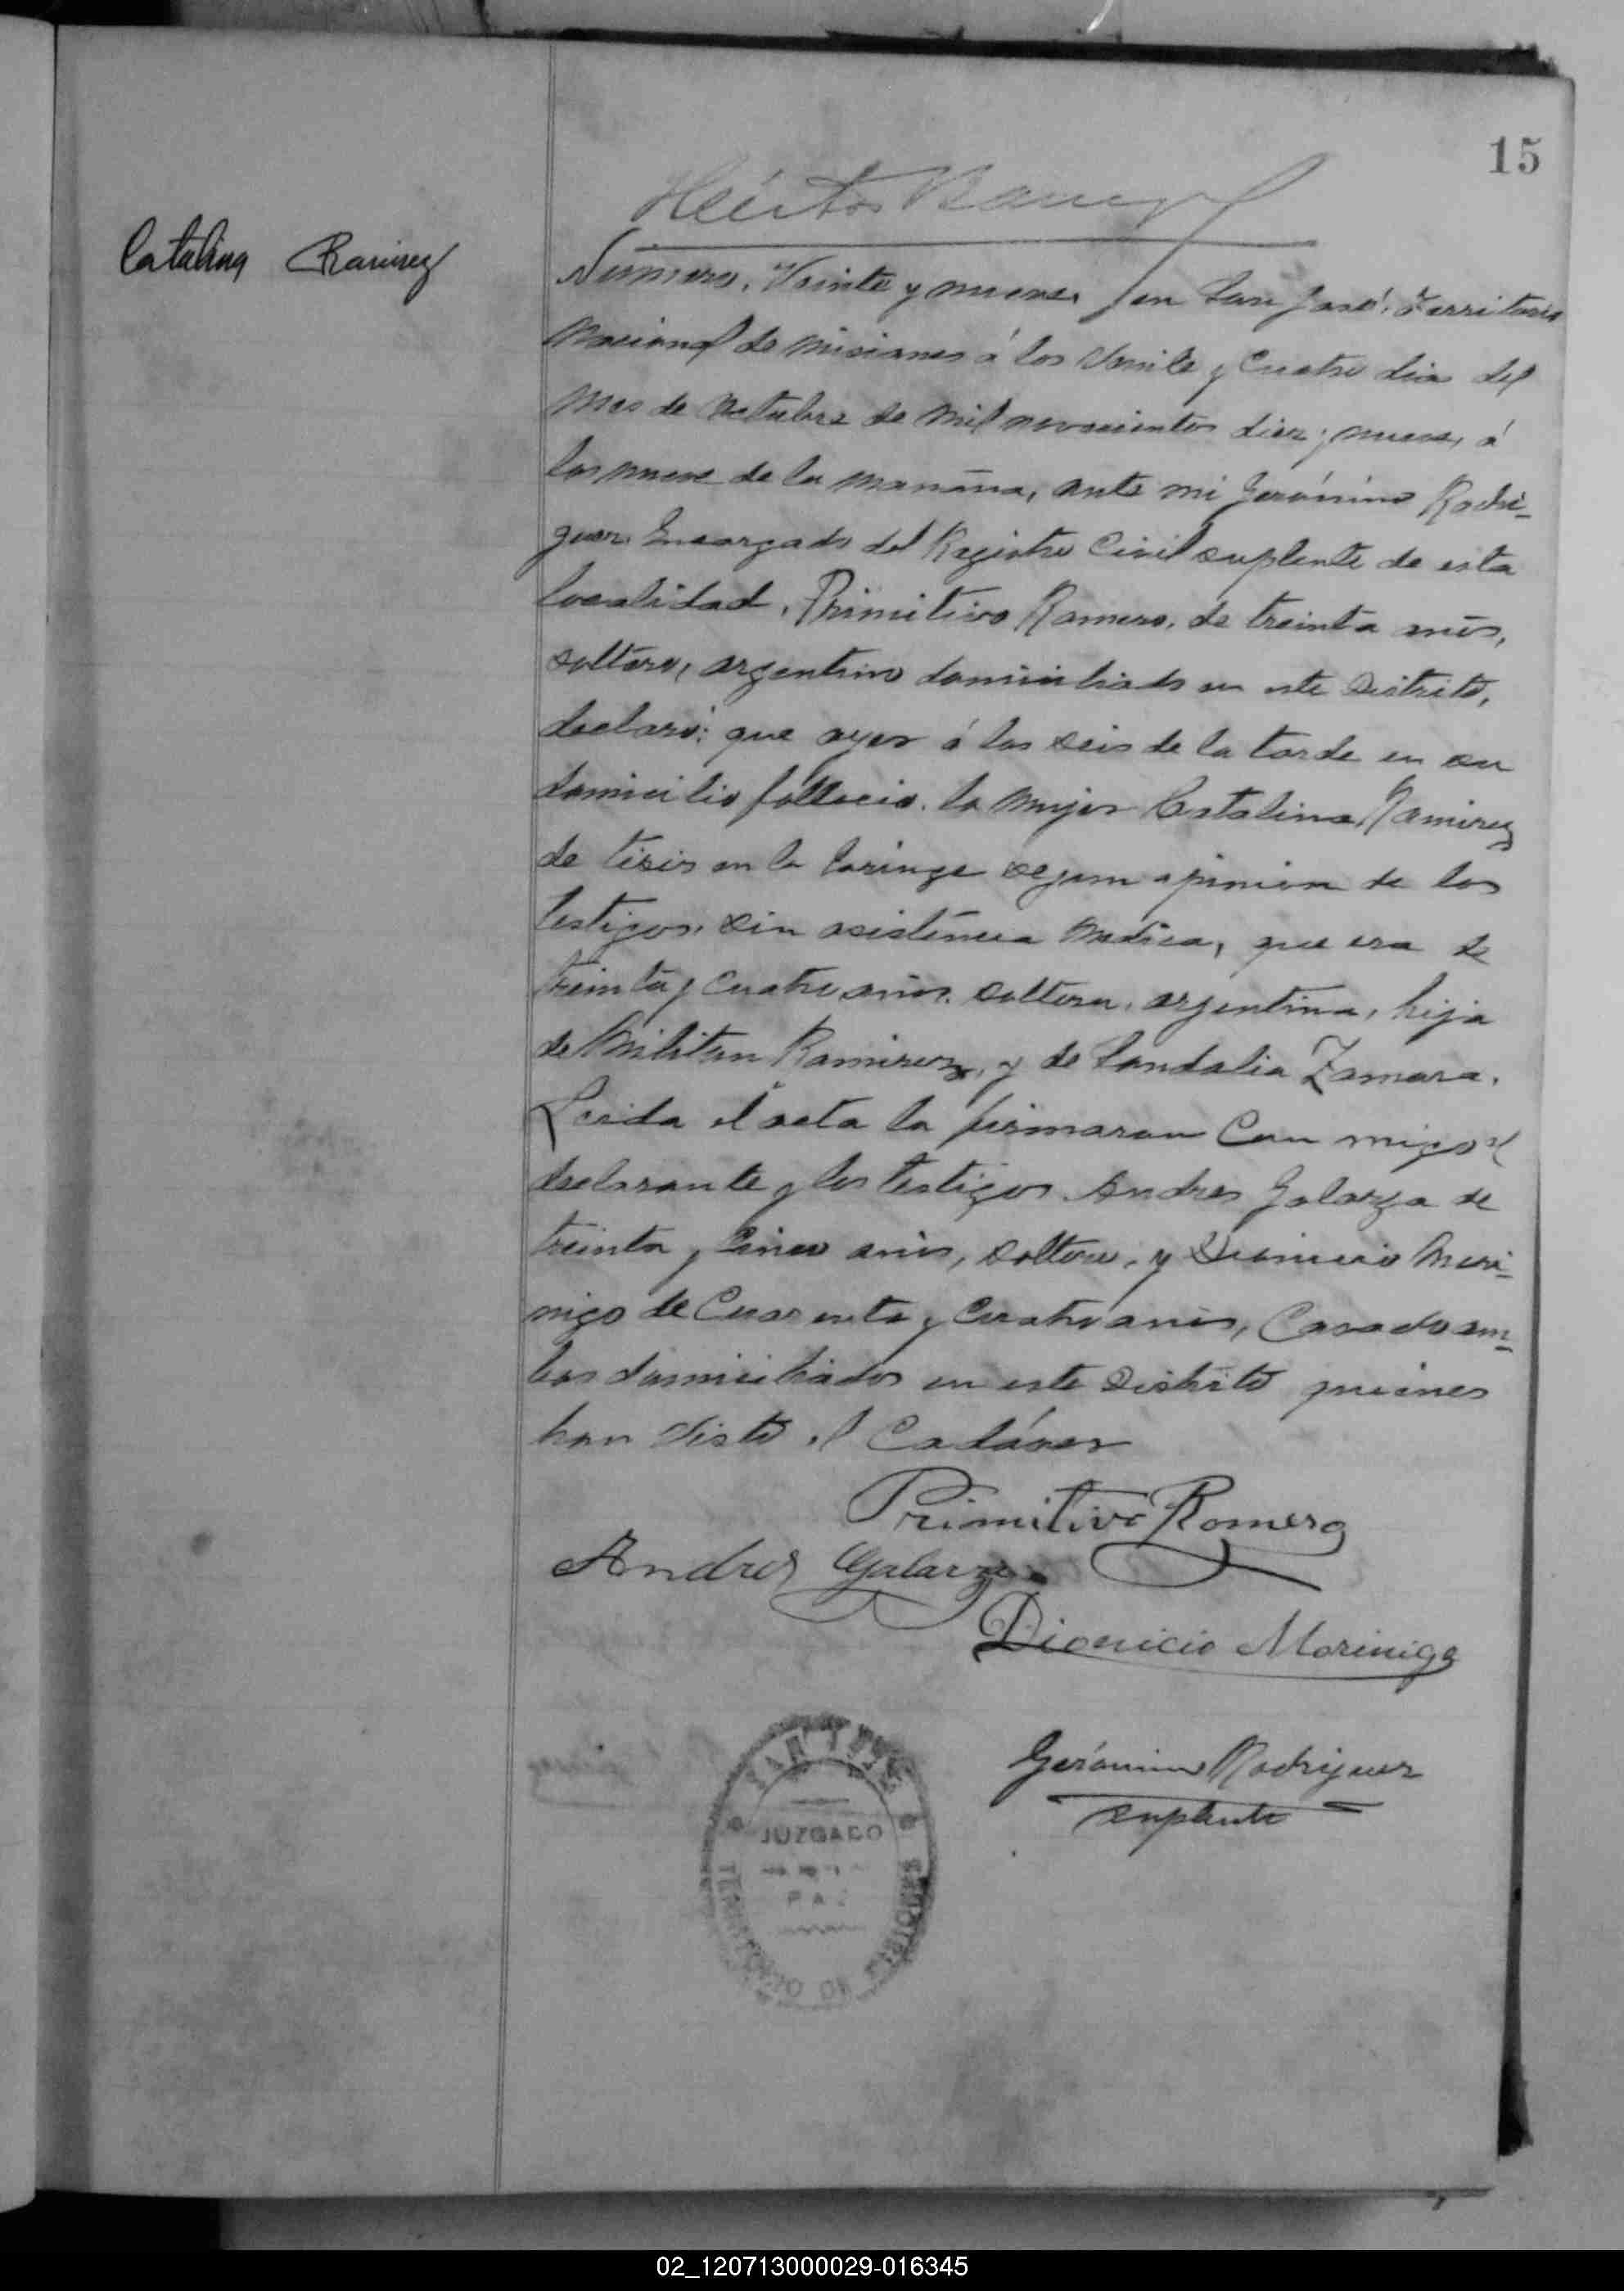 15
Catalina Ramirez
Número, Veinte y nueve, en San José, Territorio
Nacional de Misiones á los Veinte y Cuatro dias del
mes de Octubre de mil novecientos diez y nueve, á
las nueve de la mañana, ante mi Gerónimo Rodri-
guez Encargado del Registro Civil suplente de esta
localidad, Primitivo Romero, de treinta años,
soltero, argentino domiciliado en este Distrito,
declaró: que ayer á las seis de la tarde en su
domicilio fallecio la mujer Catalina Ramirez
de tisis en la laringe segun opinion de los
testigos, sin asistencia medica, que era de
treinta y cuatro años, soltera, argentina, hija
de Militon Ramirez, y de Sandalia Zamora.
Leida el acta la firmaron con migo el
declarante y los testigos Andres Galarza de
treinta y cinco años, soltero, y Dionicio Mori-
nigo de Cuarenta y Cuatro años, Casado am-
bos domiciliados en este Distrito quienes
han visto el Cadáver
Primitivo Romero
Andres Galarza
Dionicio Morinigo
Gerónimo Rodriguez
suplente
SAN JOSE
JUZGADO
PAZ
TERRITORIO DE MISIONES
02_120713000029-016345